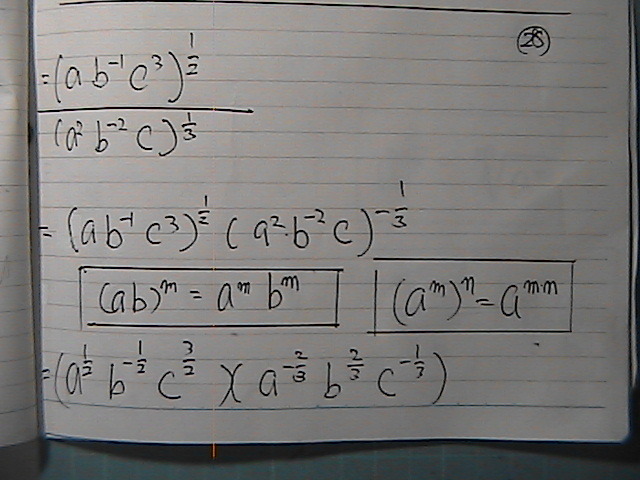 28
= (a b⁻¹ c³)^½
(a² b⁻² c)^⅓
= (a b⁻¹ c³)^½ (a²·b⁻² c)^-⅓
(ab)^m = a^m b^m (a^m)^n = a^m·n
= (a^½ b^-½ c^3/2)(a^-⅔ b^⅔ c^-⅓)